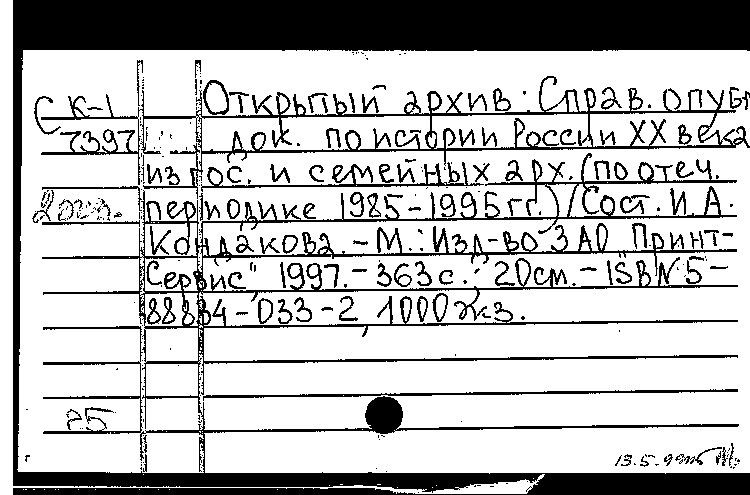 С К-1 Открытый архив: Справ. опубл
7397 док. по истории России XX века
из гос. и семейных арх. (по отеч.
2 экз. периодике 1985-1995 гг.)/Сост. И.А.
Кондакова. - М.: Изд-во ЗАО „Принт-
Сервис", 1997. - 363 с.; 20см. - ISBN 5-
88884-033-2, 1000 экз.
25
13.5.99